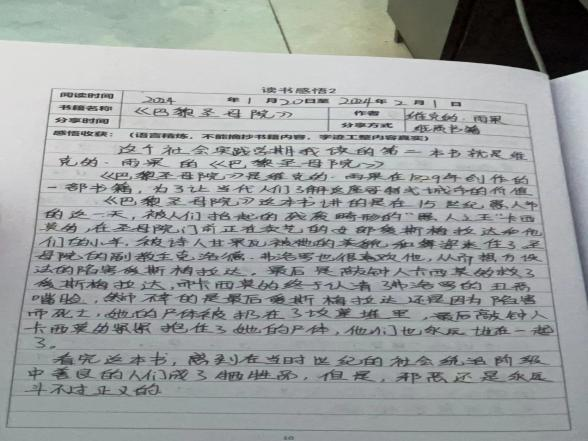 读书感悟2
阅读时间 2024 年 1 月 20 日至 2024 年 2 月 1 日
书籍名称 《巴黎圣母院》 作者 维克的·雨果
分享时间 分享方式 纸质书籍
感悟收获：（语言精炼，不能摘抄书籍内容，字迹工整内容真实）
这个社会实践学期我读的第二本书就是维
克的·雨果的《巴黎圣母院》
《巴黎圣母院》是维克的·雨果在1829年创作的
一部书籍，为了让当代人们了解这座哥特式城市的价值
《巴黎圣母院》这本书讲的是在15世纪愚人节
的这一天，被人们抬起的残疾畸形的“愚人之王”卡西
莫的，在圣母院门前正在卖艺的女郎爱斯梅拉达和他
们的小羊，被诗人甘果瓦被她的美貌和舞姿来住了圣
母院的副教主克洛德·弗洛罗也很喜欢他，从而想方设
法的陷害爱斯梅拉达，最后是敲钟人卡西莫的救了
爱斯梅拉达，而卡西莫的终于认清了弗洛罗的丑恶
嘴脸，然而不幸的是最后爱斯梅拉达还是因为陷害
而死亡，她的尸体被扔在了坟墓堆里，最后敲钟人
卡西莫的紧紧抱住了她的尸体，他们也永远地在一起
了。
看完这本书，离到在当时世纪的社会统治阶级
中善良的人们成了牺牲品，但是，邪恶还是永远
斗不过正义的
10